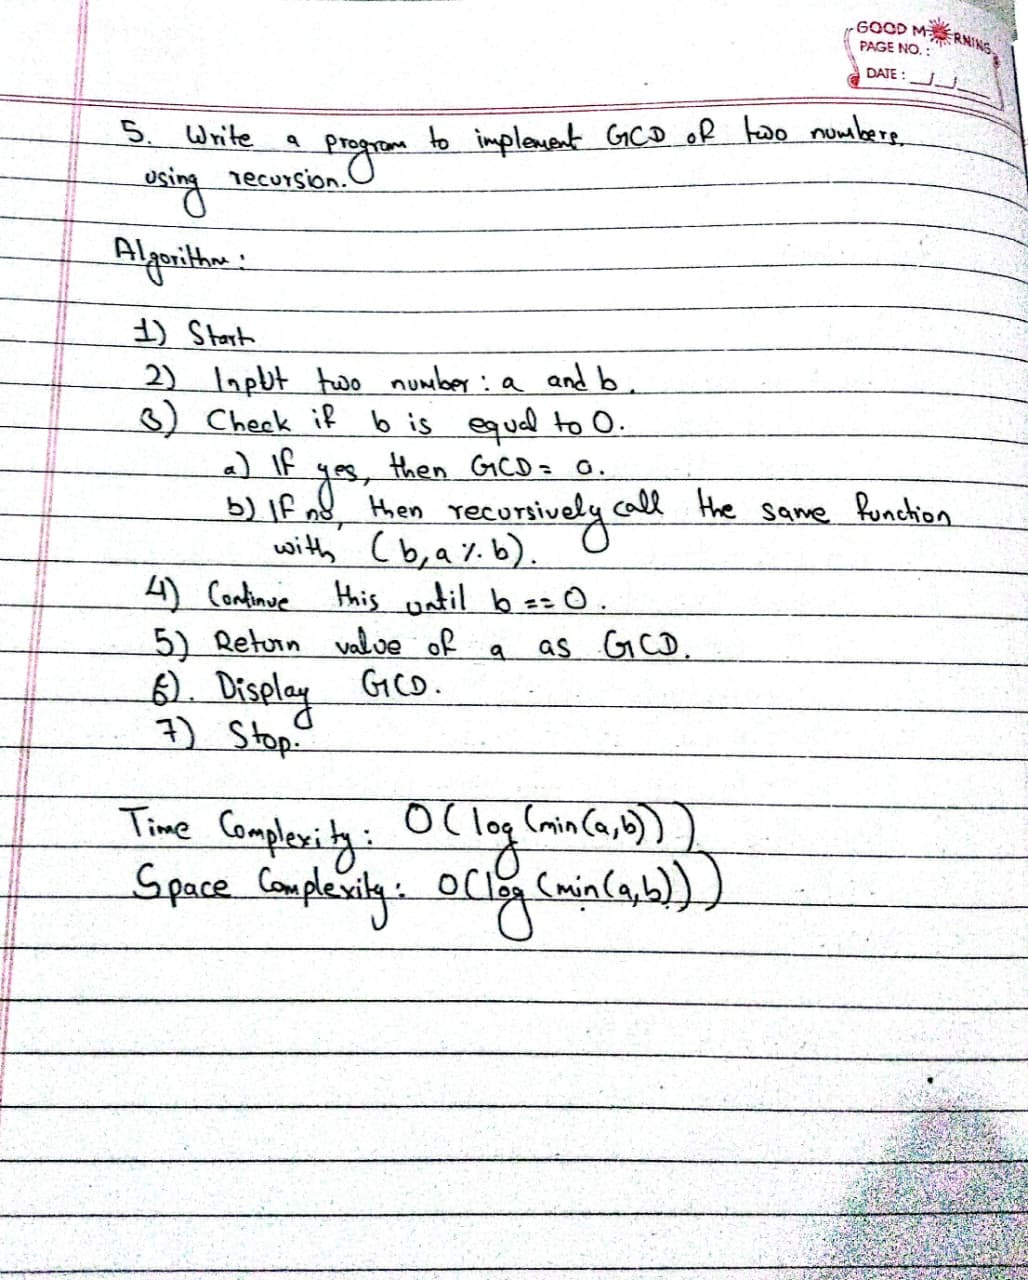 GOOD MORNING
PAGE NO. :
DATE : _/_/_
5. Write a program to implement GCD of two numbers.
using recursion.
Algorithm :
1) Start
2) Input two number : a and b.
3) Check if b is equal to 0.
a) If yes, then GCD = a.
b) If no, then recursively call the same function
with (b, a % b).
4) Continue this until b == 0.
5) Return value of a as GCD.
6). Display GCD.
7) Stop.
Time Complexity : O(log(min(a,b)))
Space Complexity : O(log(min(a,b)))